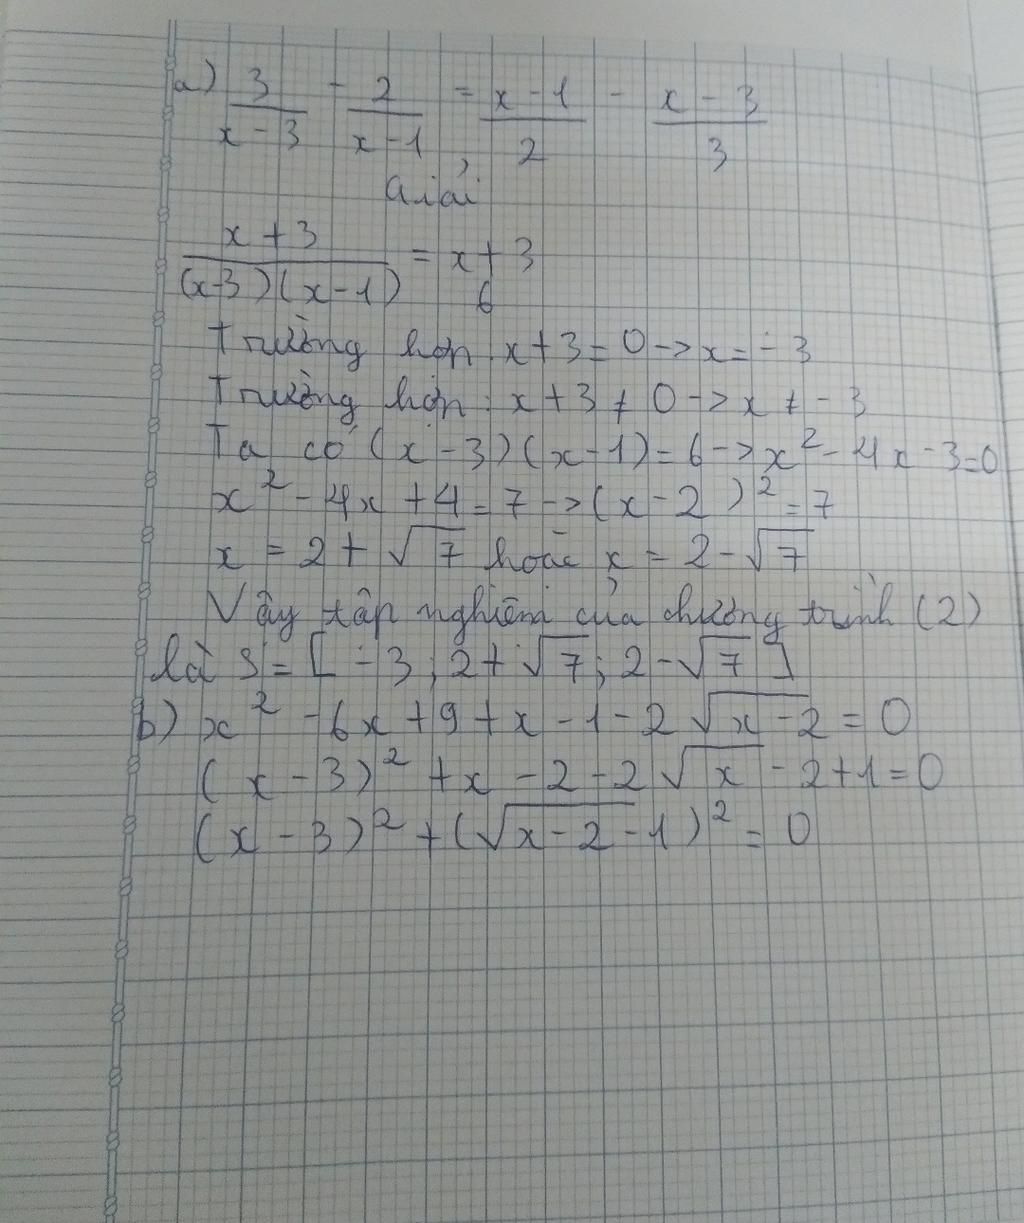 a) 3/(x-3) - 2/(x-1) = (x-1)/2 - (x-3)/3
Giải
(x+3)/((x-3)(x-1)) = (x+3)/6
Trường hợp x+3=0->x=-3
Trường hợp: x+3≠0->x≠-3
Ta có (x-3)(x-1)=6->x²-4x-3=0
x²-4x+4=7->(x-2)²=7
x=2+√7 hoặc x=2-√7
Vậy tập nghiệm của chương trình (2)
là S=[-3;2+√7;2-√7]
b) x²-6x+9+x-1-2√(x-2)=0
(x-3)²+x-2-2√x-2+1=0
(x-3)²+(√(x-2)-1)²=0